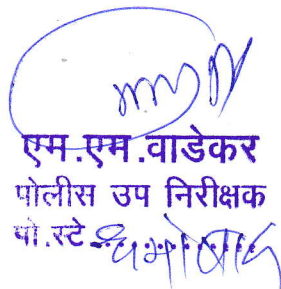 एम.एम.वाडेकर
पोलीस उप निरीक्षक
पो.स्टे.